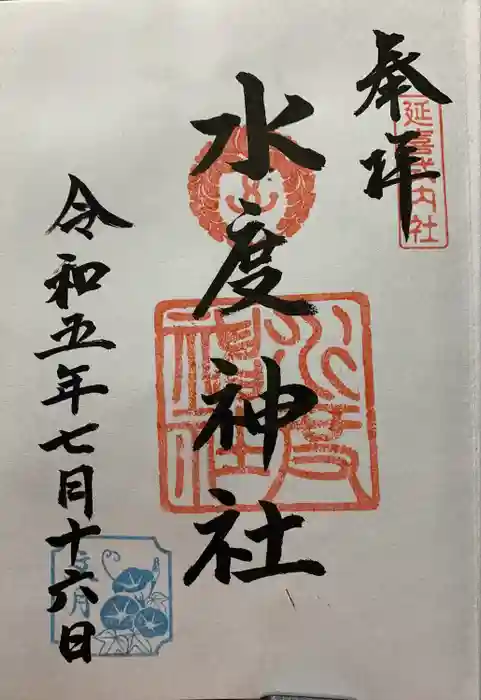 奉拝
延喜式内社
水度神社
水度神社
令和五年七月十六日
文月